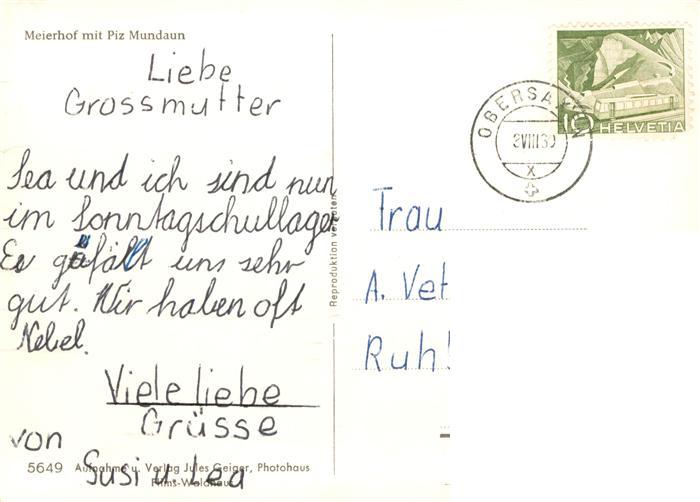 Meierhof mit Piz Mundaun
Liebe
Grossmutter
Lea und ich sind nun
im Sonntagschullager
Es gefällt uns sehr
gut. Wir haben oft
Nebel.
Viele liebe
Grüsse
von
Susi u. Lea
5649 Aufnahme u. Verlag Jules Geiger, Photohaus
Flims-Waldhaus
Reproduktion verboten
OBERSAXEN
VIII
X
10 HELVETIA
Frau
A. Vet
Ruh